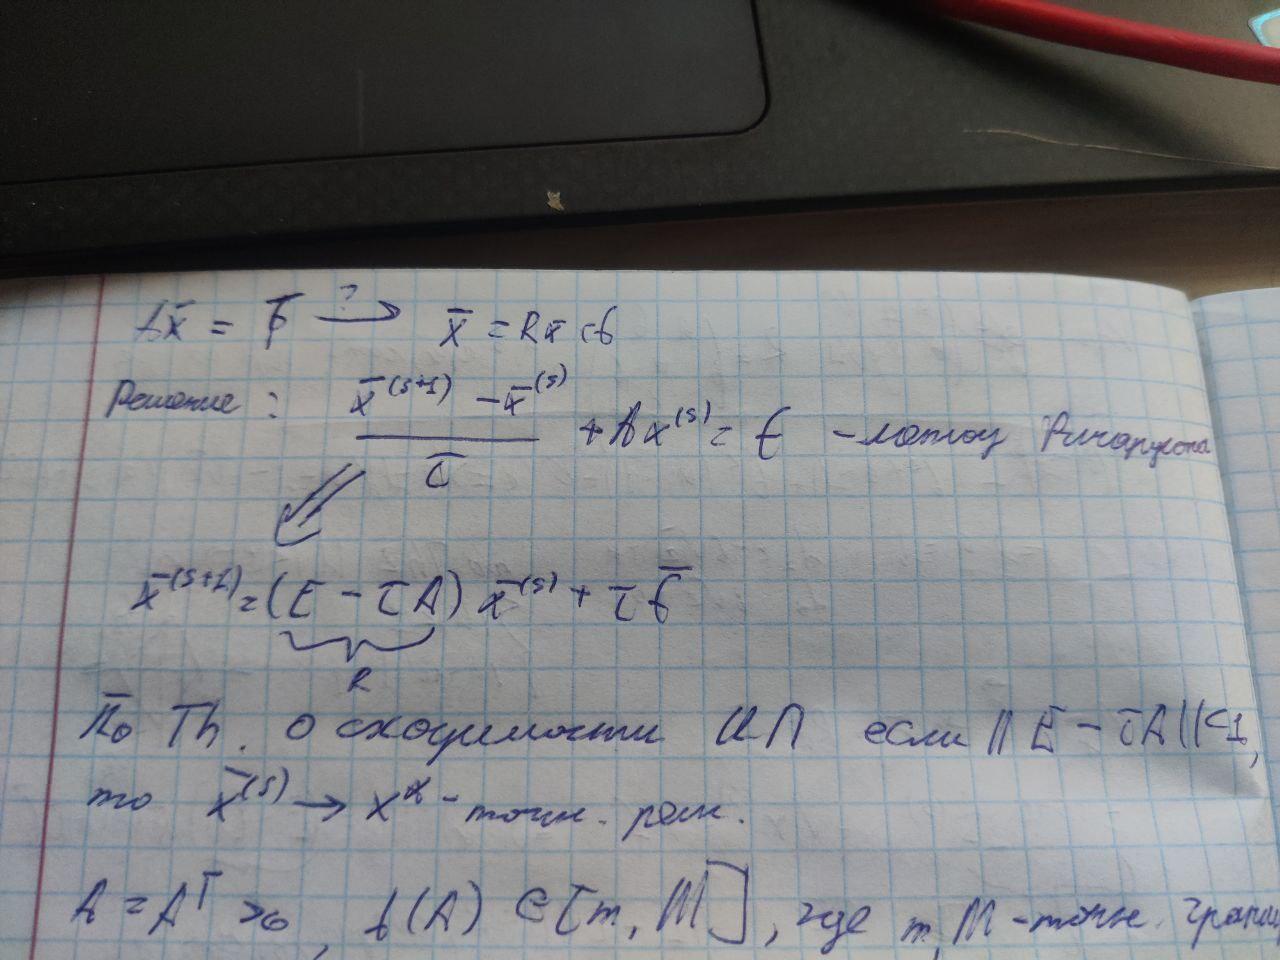 Ax̄ = b̄ →? x̄ = Rx̄ + b
Решение : (x̄^(s+1) - x̄^(s)) / τ + Ax^(s) = b - метод Ричардсона
x̄^(s+1) = (E - τA) x̄^(s) + τb̄
R
По Th. о сходимости ИП если ||E - τA||<1,
то x̄^(s) → x* - точн. реш.
A = A^T >0, λ(A) ∈ [m, M], где m, M - точн. границ